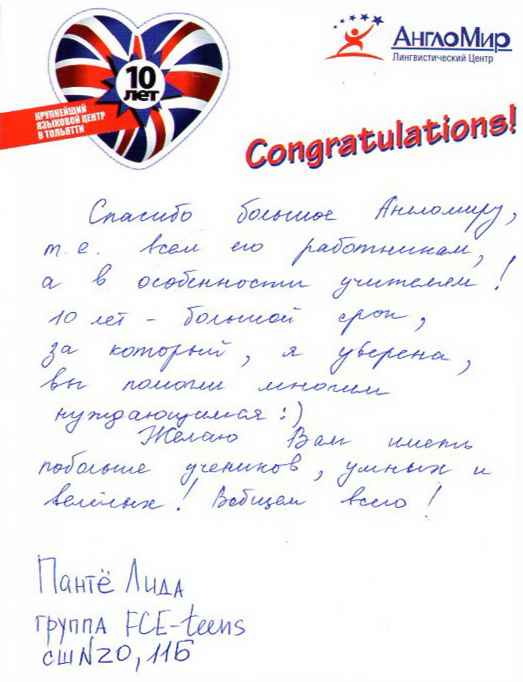 10
лет
КРУПНЕЙШИЙ
ЯЗЫКОВОЙ ЦЕНТР
В ТОЛЬЯТТИ
АнглоМир
Лингвистический Центр
Congratulations!
Спасибо большое Англомиру,
т.е. всем его работникам,
а в особенности учителям!
10 лет - большой срок,
за который, я уверена,
вы помогли многим
нуждающимся :)
Желаю Вам иметь
побольше учеников, умных и
весёлых! Вобщем всего!
Пантё Лида
группа FCE-teens
сш N20, 11Б